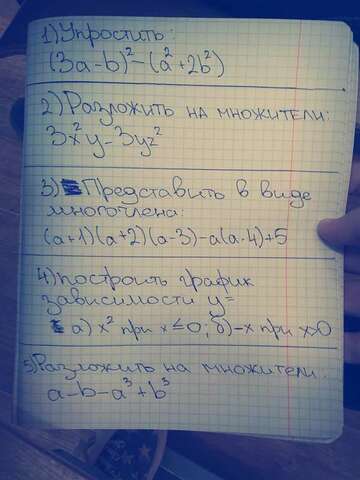 1) Упростить:
(3a-b)²-(a²+2b²)
2) Разложить на множители:
3x²y-3yz²
3) Представить в виде
многочлена:
(a+1)(a+2)(a-3)-a(a-4)+5
4) построить график
зависимости y=
а) x² при x≤0; б) -x при x>0
5) Разложить на множители:
a-b-a³+b³